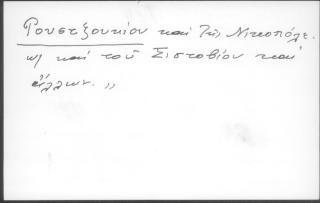 Ρουστζουκίου καὶ τῆς Νικοπόλε-
ως καὶ τοῦ Σιστοβίου καὶ
ἄλλων. „